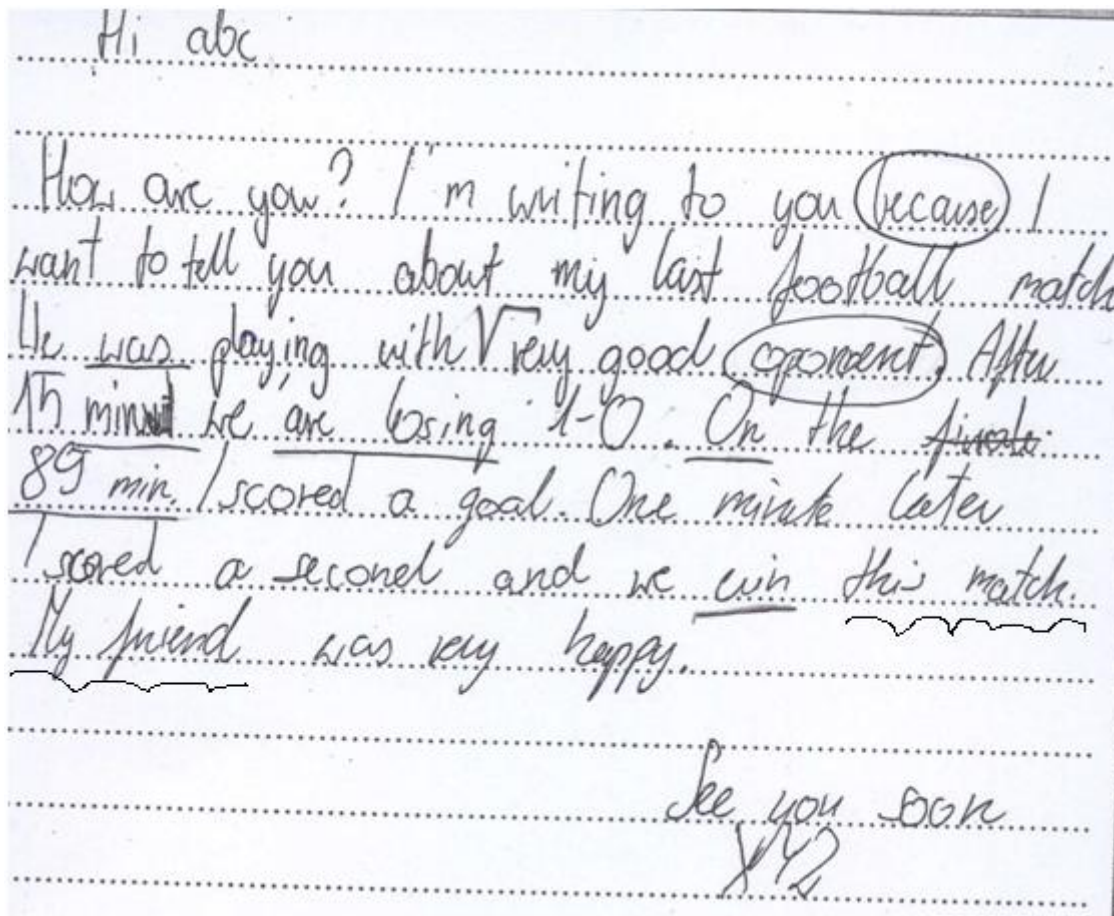 Hi abc
How are you? I'm writing to you because I
want to tell you about my last football match
We was playing with √ very good oponent. After
15 min we are losing 1-0. On the
89 min. I scored a goal. One minute later
I scored a second and we win this match.
My friend was very happy.
See you soon
XYZ